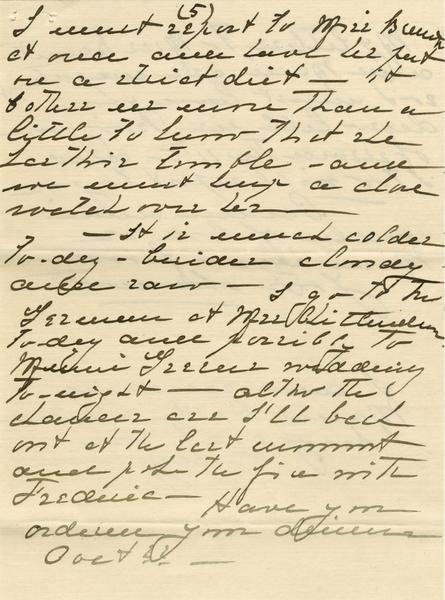 (5)
I must report to Miss
at once and have her put
on a strict diet — it
bothers me more than a
little to know that she
has this trouble - and
we must keep a close
watch over her —
— It is much colder
to-day - besides cloudy
and raw — I go to the
at Mrs
to-day and possibly to
wedding
to-night — altho the
chances are I'll back
out at the last moment
and poke the fire with
Frederica —
Have you
ordered your dinner